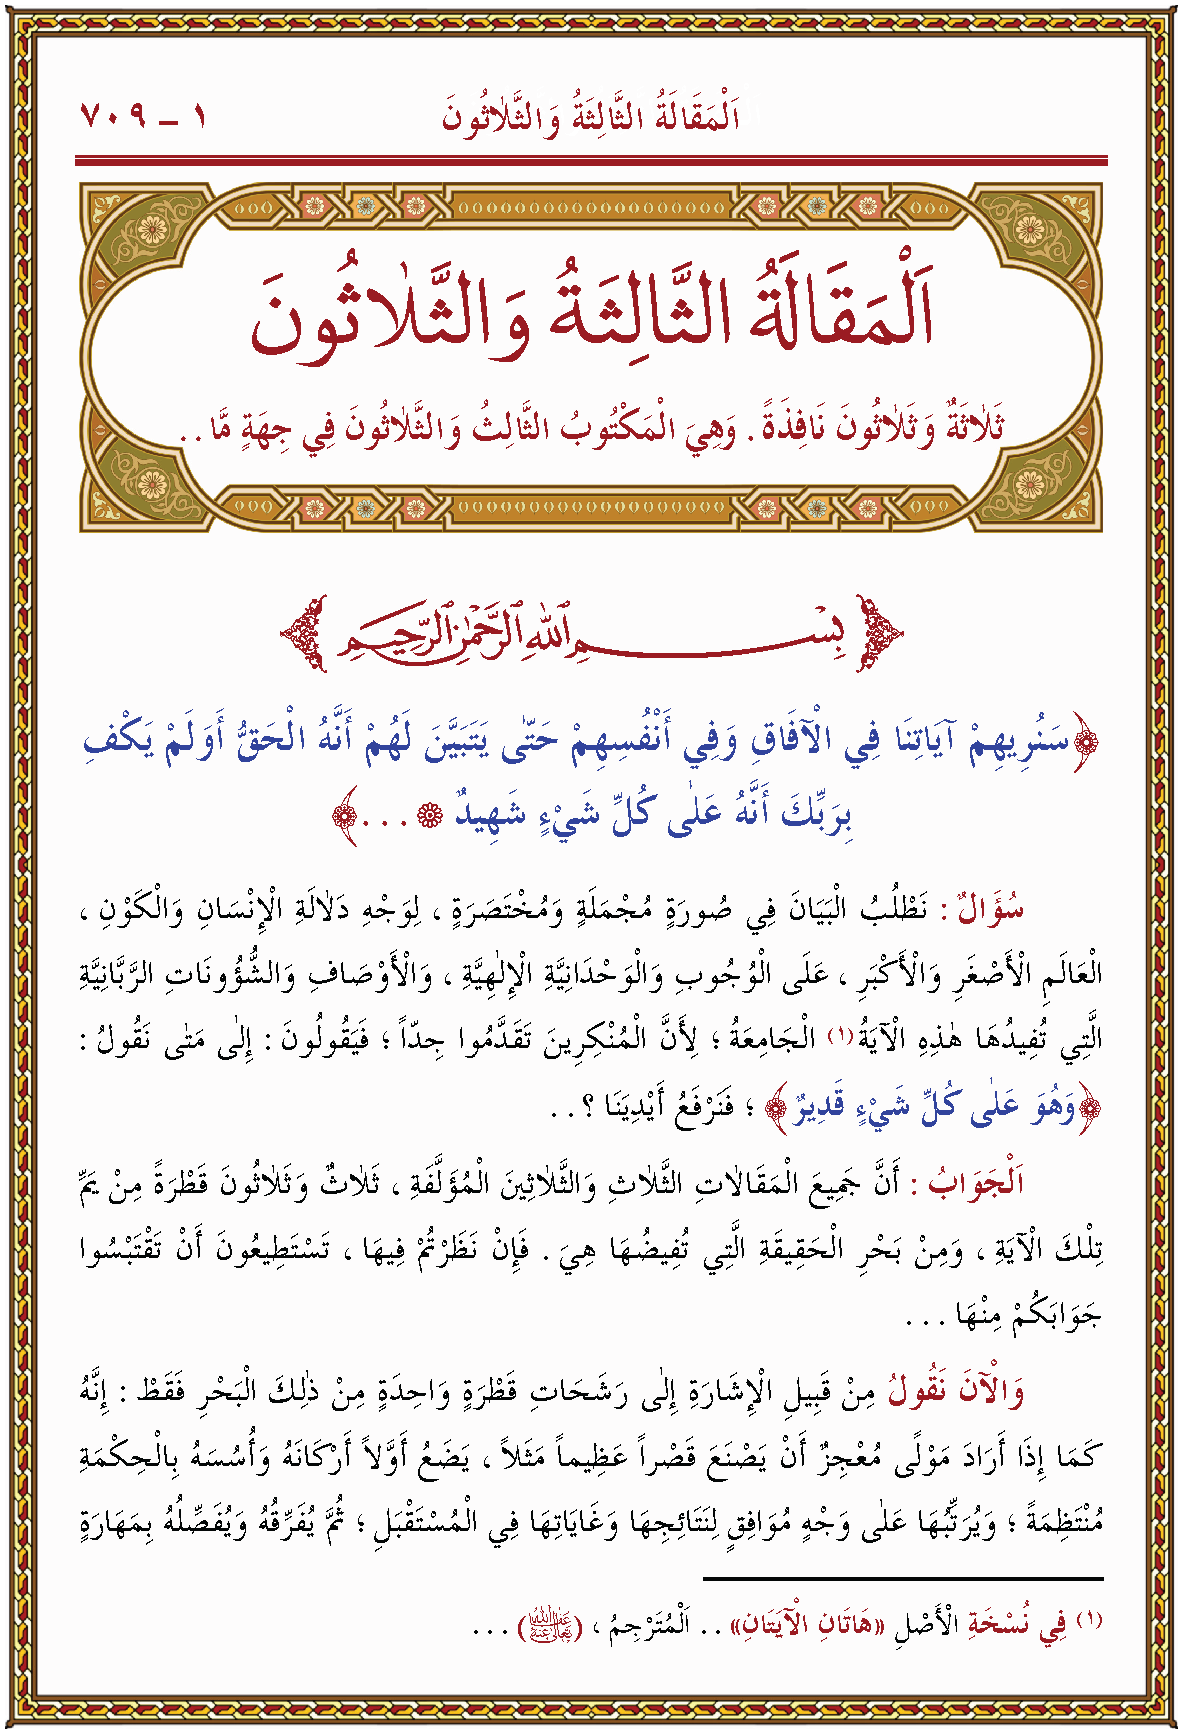 اَلْمَقَالَةُ الثَّالِثَةُ وَالثَّلٰاثُونَ ١ ـ ٧٠٩
اَلْمَقَالَةُ الثَّالِثَةُ وَالثَّلٰاثُونَ
ثَلٰاثَةٌ وَثَلٰاثُونَ نَافِذَةً . وَهِيَ الْمَكْتُوبُ الثَّالِثُ وَالثَّلٰاثُونَ فِي جِهَةٍ مَّا . .
بِسْمِ اللهِ الرَّحْمٰنِ الرَّحِيمِ
﴿سَنُرِيهِمْ آيَاتِنَا فِي الْآفَاقِ وَفِي أَنْفُسِهِمْ حَتّٰى يَتَبَيَّنَ لَهُمْ أَنَّهُ الْحَقُّ أَوَلَمْ يَكْفِ
بِرَبِّكَ أَنَّهُ عَلٰى كُلِّ شَيْءٍ شَهِيدٌ ۞ . . .﴾
سُؤَالٌ : نَطْلُبُ الْبَيَانَ فِي صُورَةٍ مُجْمَلَةٍ وَمُخْتَصَرَةٍ ، لِوَجْهِ دَلَالَةِ الْإِنْسَانِ وَالْكَوْنِ ،
الْعَالَمِ الْأَصْغَرِ وَالْأَكْبَرِ ، عَلَى الْوُجُوبِ وَالْوَحْدَانِيَّةِ الْإِلٰهِيَّةِ ، وَالْأَوْصَافِ وَالشُّؤُونَاتِ الرَّبَّانِيَّةِ
الَّتِي تُفِيدُهَا هٰذِهِ الْآيَةُ(١) الْجَامِعَةُ ؛ لِأَنَّ الْمُنْكِرِينَ تَقَدَّمُوا جِدّاً ؛ فَيَقُولُونَ : إِلٰى مَتٰى نَقُولُ :
﴿وَهُوَ عَلٰى كُلِّ شَيْءٍ قَدِيرٌ﴾ ؛ فَنَرْفَعُ أَيْدِيَنَا ؟ . .
اَلْجَوَابُ : أَنَّ جَمِيعَ الْمَقَالٰاتِ الثَّلٰاثِ وَالثَّلٰاثِينَ الْمُؤَلَّفَةِ ، ثَلٰاثٌ وَثَلٰاثُونَ قَطْرَةً مِنْ يَمِّ
تِلْكَ الْآيَةِ ، وَمِنْ بَحْرِ الْحَقِيقَةِ الَّتِي تُفِيضُهَا هِيَ . فَإِنْ نَظَرْتُمْ فِيهَا ، تَسْتَطِيعُونَ أَنْ تَقْتَبِسُوا
جَوَابَكُمْ مِنْهَا . . .
وَالْآنَ نَقُولُ مِنْ قَبِيلِ الْإِشَارَةِ إِلٰى رَشَحَاتِ قَطْرَةٍ وَاحِدَةٍ مِنْ ذٰلِكَ الْبَحْرِ فَقَطْ : إِنَّهُ
كَمَا إِذَا أَرَادَ مَوْلًى مُعْجِزٌ أَنْ يَصْنَعَ قَصْراً عَظِيماً مَثَلاً ، يَضَعُ أَوَّلاً أَرْكَانَهُ وَأُسُسَهُ بِالْحِكْمَةِ
مُنْتَظِمَةً ؛ وَيُرَتِّبُهَا عَلٰى وَجْهٍ مُوَافِقٍ لِنَتَائِجِهَا وَغَايَاتِهَا فِي الْمُسْتَقْبَلِ ؛ ثُمَّ يُفَرِّقُهُ وَيُفَصِّلُهُ بِمَهَارَةٍ
(١) فِي نُسْخَةِ الْأَصْلِ «هَاتَانِ الْآيَتَانِ» . . اَلْمُتَرْجِمُ ، ( ) . . .